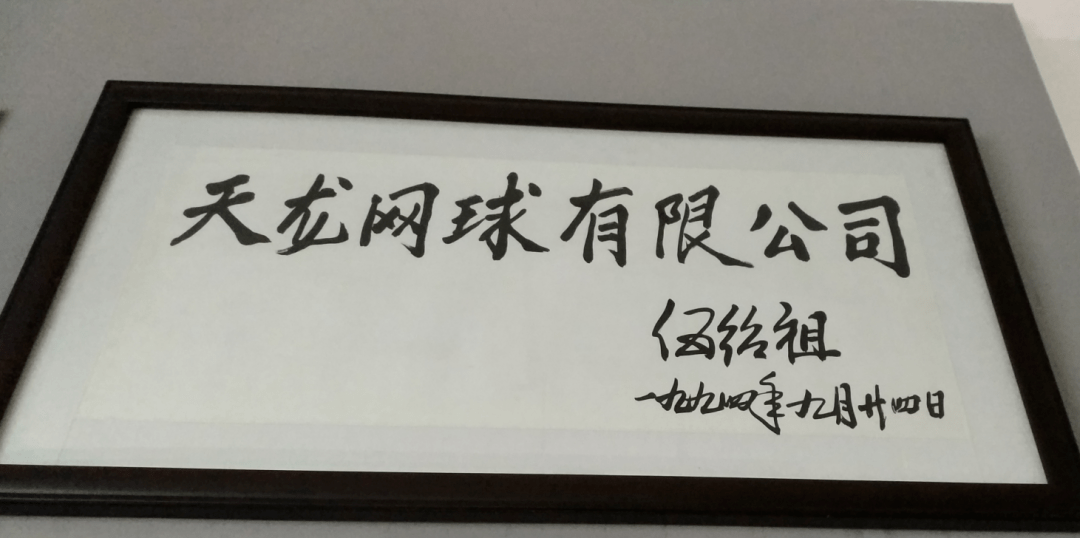 天龙网球有限公司
伍绍祖
一九九四年九月廿四日